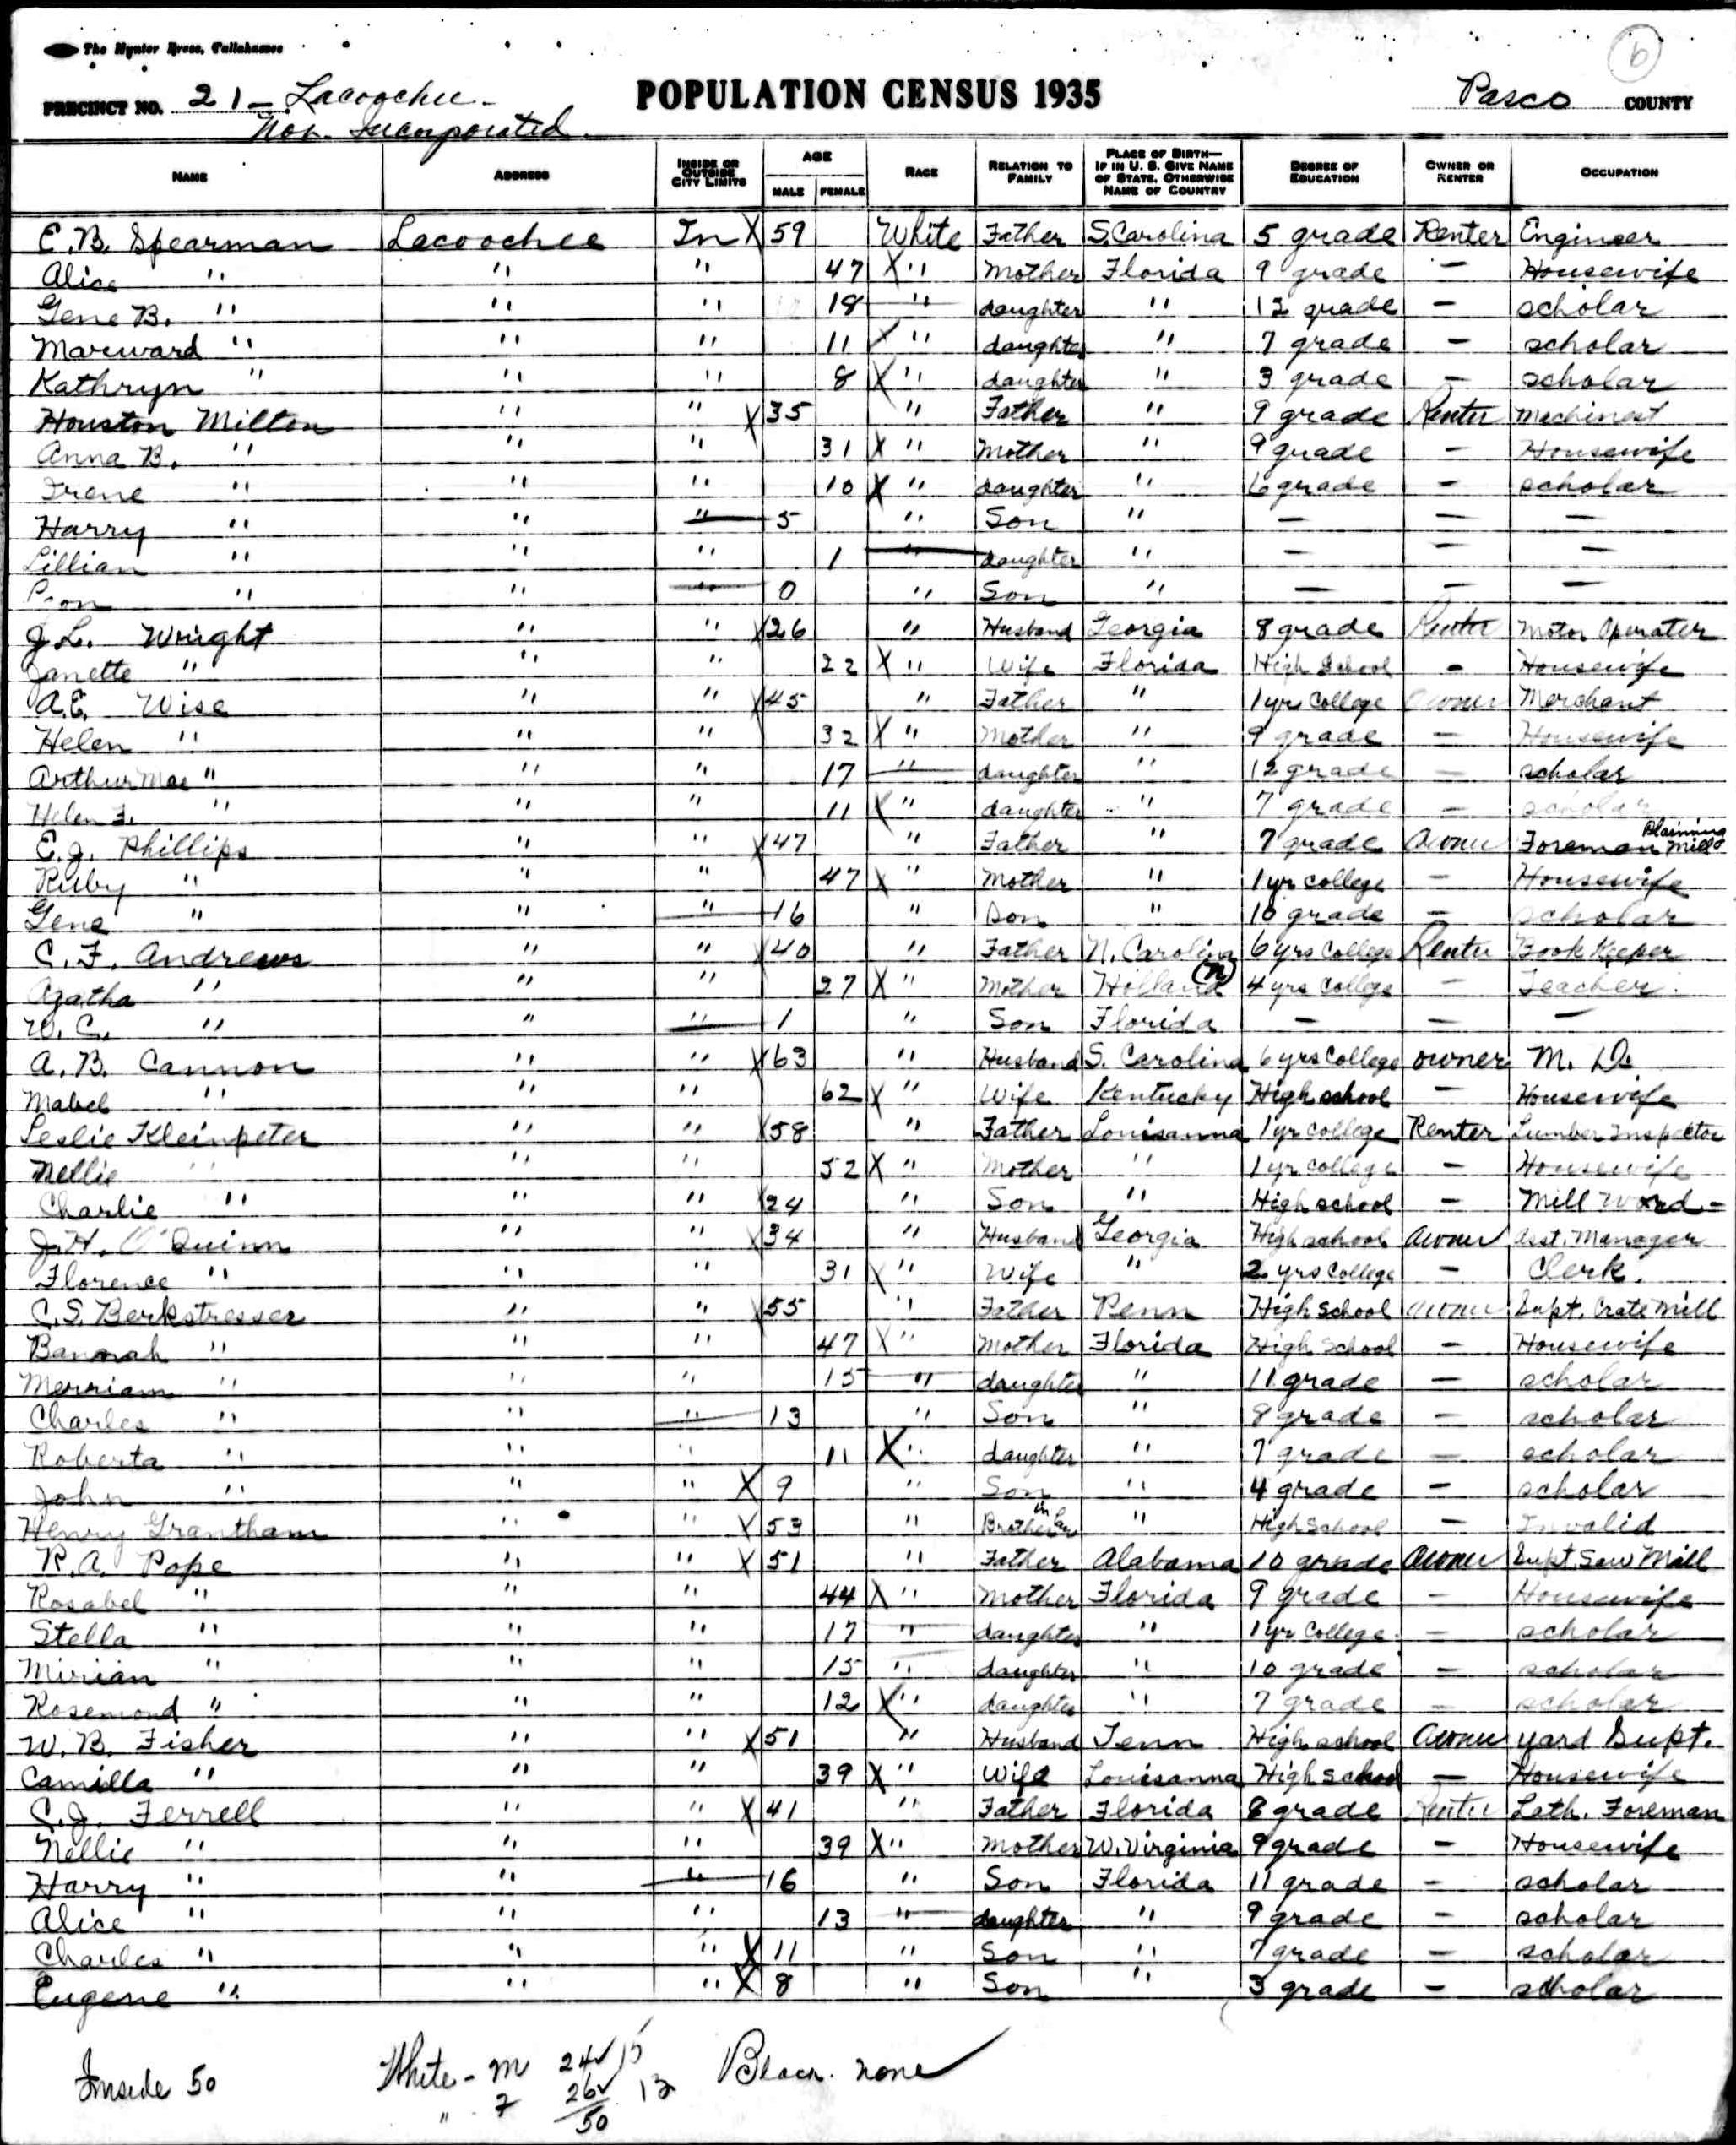 The Hynter Press, Tallahassee
6
PRECINCT NO. 21 - Lacoochee - POPULATION CENSUS 1935 Pasco COUNTY
Non. Incorporated.
NAME ADDRESS INSIDE OR OUTSIDE CITY LIMITS AGE MALE FEMALE RACE RELATION TO FAMILY PLACE OF BIRTH— IF IN U. S. GIVE NAME OF STATE. OTHERWISE NAME OF COUNTRY DEGREE OF EDUCATION OWNER OR RENTER OCCUPATION
E. B. Spearman Lacoochee In X 59 White Father S. Carolina 5 grade Renter Engineer
Alice " " " 47 X " Mother Florida 9 grade - Housewife
Gene B. " " " 18 " daughter " 12 grade - scholar
Marward " " " 11 X " daughter " 7 grade - scholar
Kathryn " " " 8 X " daughter " 3 grade - scholar
Houston Milton " " X 35 " Father " 9 grade Renter Mechinest
Anna B. " " " 31 X " Mother " 9 grade - Housewife
Irene " " " 10 X " daughter " 6 grade - scholar
Harry " " " 5 " Son " - - -
Lillian " " " 1 " daughter " - - -
" " " 0 " Son " - - -
J. L. Wright " " X 26 " Husband Georgia 8 grade Renter Motor Operater
Janette " " " 22 X " Wife Florida High School - Housewife
A. E. Wise " " X 45 " Father " 1 yr College Owner Merchant
Helen " " " 32 X " Mother " 9 grade - Housewife
Arthur Mae " " " 17 " daughter " 12 grade - scholar
Helen F. " " " 11 X " daughter " 7 grade - scholar
E. J. Phillips " " X 47 " Father " 7 grade Owner Foreman Plaining Mill
Ruby " " " 47 X " Mother " 1 yr college - Housewife
Gene " " " 16 " Son " 10 grade - scholar
C. F. Andrews " " X 40 " Father N. Carolina 6 yrs College Renter Book Keeper
Agatha " " " 27 X " Mother Holland (n) 4 yrs College - Teacher.
W. C. " " " 1 " Son Florida - - -
A. B. Cannon " " X 63 " Husband S. Carolina 6 yrs College owner M. D.
Mabel " " " 62 X " Wife Kentucky High school - Housewife
Leslie Kleinpeter " " X 58 " Father Louisanna 1 yr college Renter Lumber Inspector
Nellie " " " 52 X " Mother " 1 yr college - Housewife
Charlie " " " X 24 " Son " High school - Mill
J. H. O'Quinn " " X 34 " Husband Georgia High school Owner Asst. Manager
Florence " " " 31 X " Wife " 2 yrs College - Clerk.
C. S. Berkstresser " " X 55 " Father Penn High School Owner Supt. Crate Mill
Bannah " " " 47 X " Mother Florida High School - Housewife
Merriam " " " 15 " daughter " 11 grade - scholar
Charles " " " 13 " Son " 8 grade - scholar
Roberta " " " 11 X " daughter " 7 grade - scholar
John " " " X 9 " Son " 4 grade - scholar
Henry Grantham " " X 53 " Brother in law " High School - Invalid
R. A. Pope " " X 51 " Father Alabama 10 grade Owner Supt. Saw Mill
Rosabel " " " 44 X " Mother Florida 9 grade - Housewife
Stella " " " 17 " daughter " 1 yr College - scholar
Mirian " " " 15 " daughter " 10 grade - scholar
Rosemond " " " 12 X " daughter " 7 grade - scholar
W. B. Fisher " " X 51 " Husband Tenn High school Owner yard Supt.
Camilla " " " 39 X " Wife Louisanna High school - Housewife
C. J. Ferrell " " X 41 " Father Florida 8 grade Renter Lath. Foreman
Nellie " " " 39 X " Mother W. Virginia 9 grade - Housewife
Harry " " " 16 " Son Florida 11 grade - scholar
Alice " " " 13 " daughter " 9 grade - scholar
Charles " " " X 11 " Son " 7 grade - scholar
Eugene " " " X 8 " Son " 3 grade - scholar
Inside 50 White - M 24 ✓ 15 Black. none
" F 26 ✓ 13
50